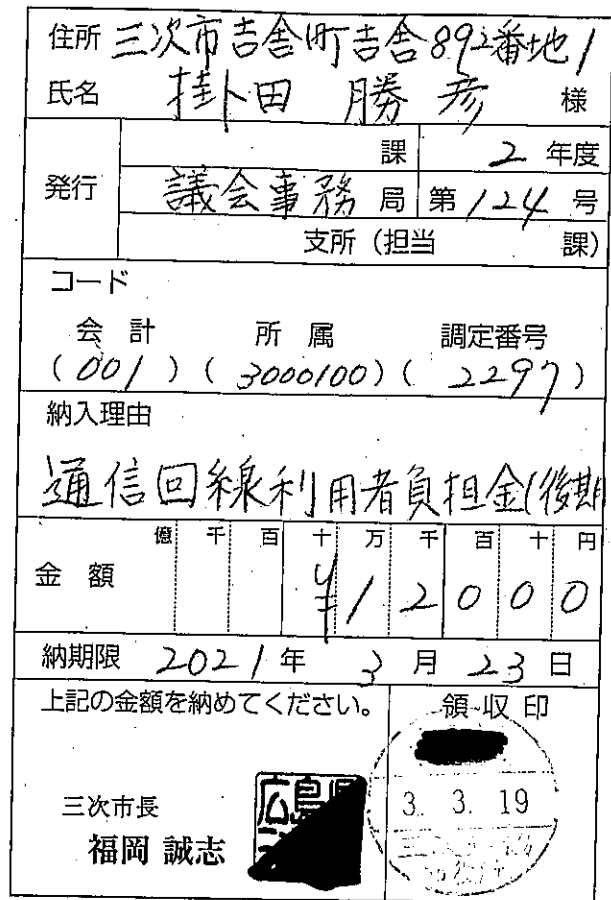 住所 三次市吉舎町吉舎892番地1
氏名 掛田 勝彦 様
課 2 年度
発行 議会事務 局 第 124 号
支所(担当 課)
コード
会計 所属 調定番号
(001) (3000100) (2297)
納入理由
通信回線利用者負担金(後期
億 千 百 十 万 千 百 十 円
金額 ¥12000
納期限 2021年 3月 23日
上記の金額を納めてください。 領収印
3. 3. 19
三次市長
福岡 誠志
広島県